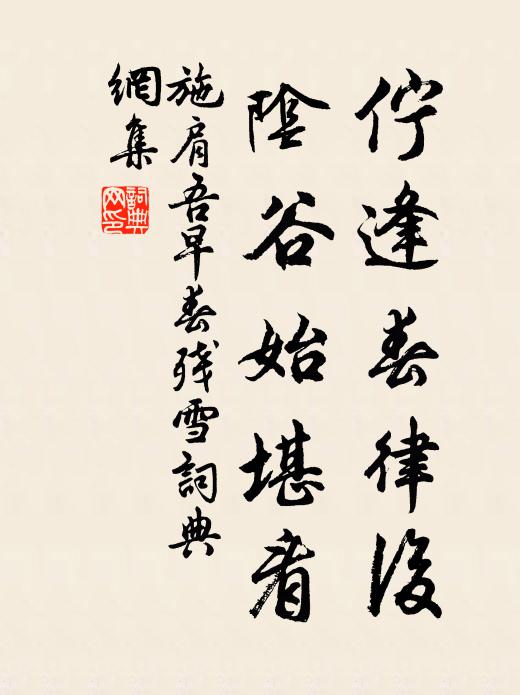 佇逢春律後
陰谷始堪看
施肩吾早春殘雪詞典
網集
詞典網印